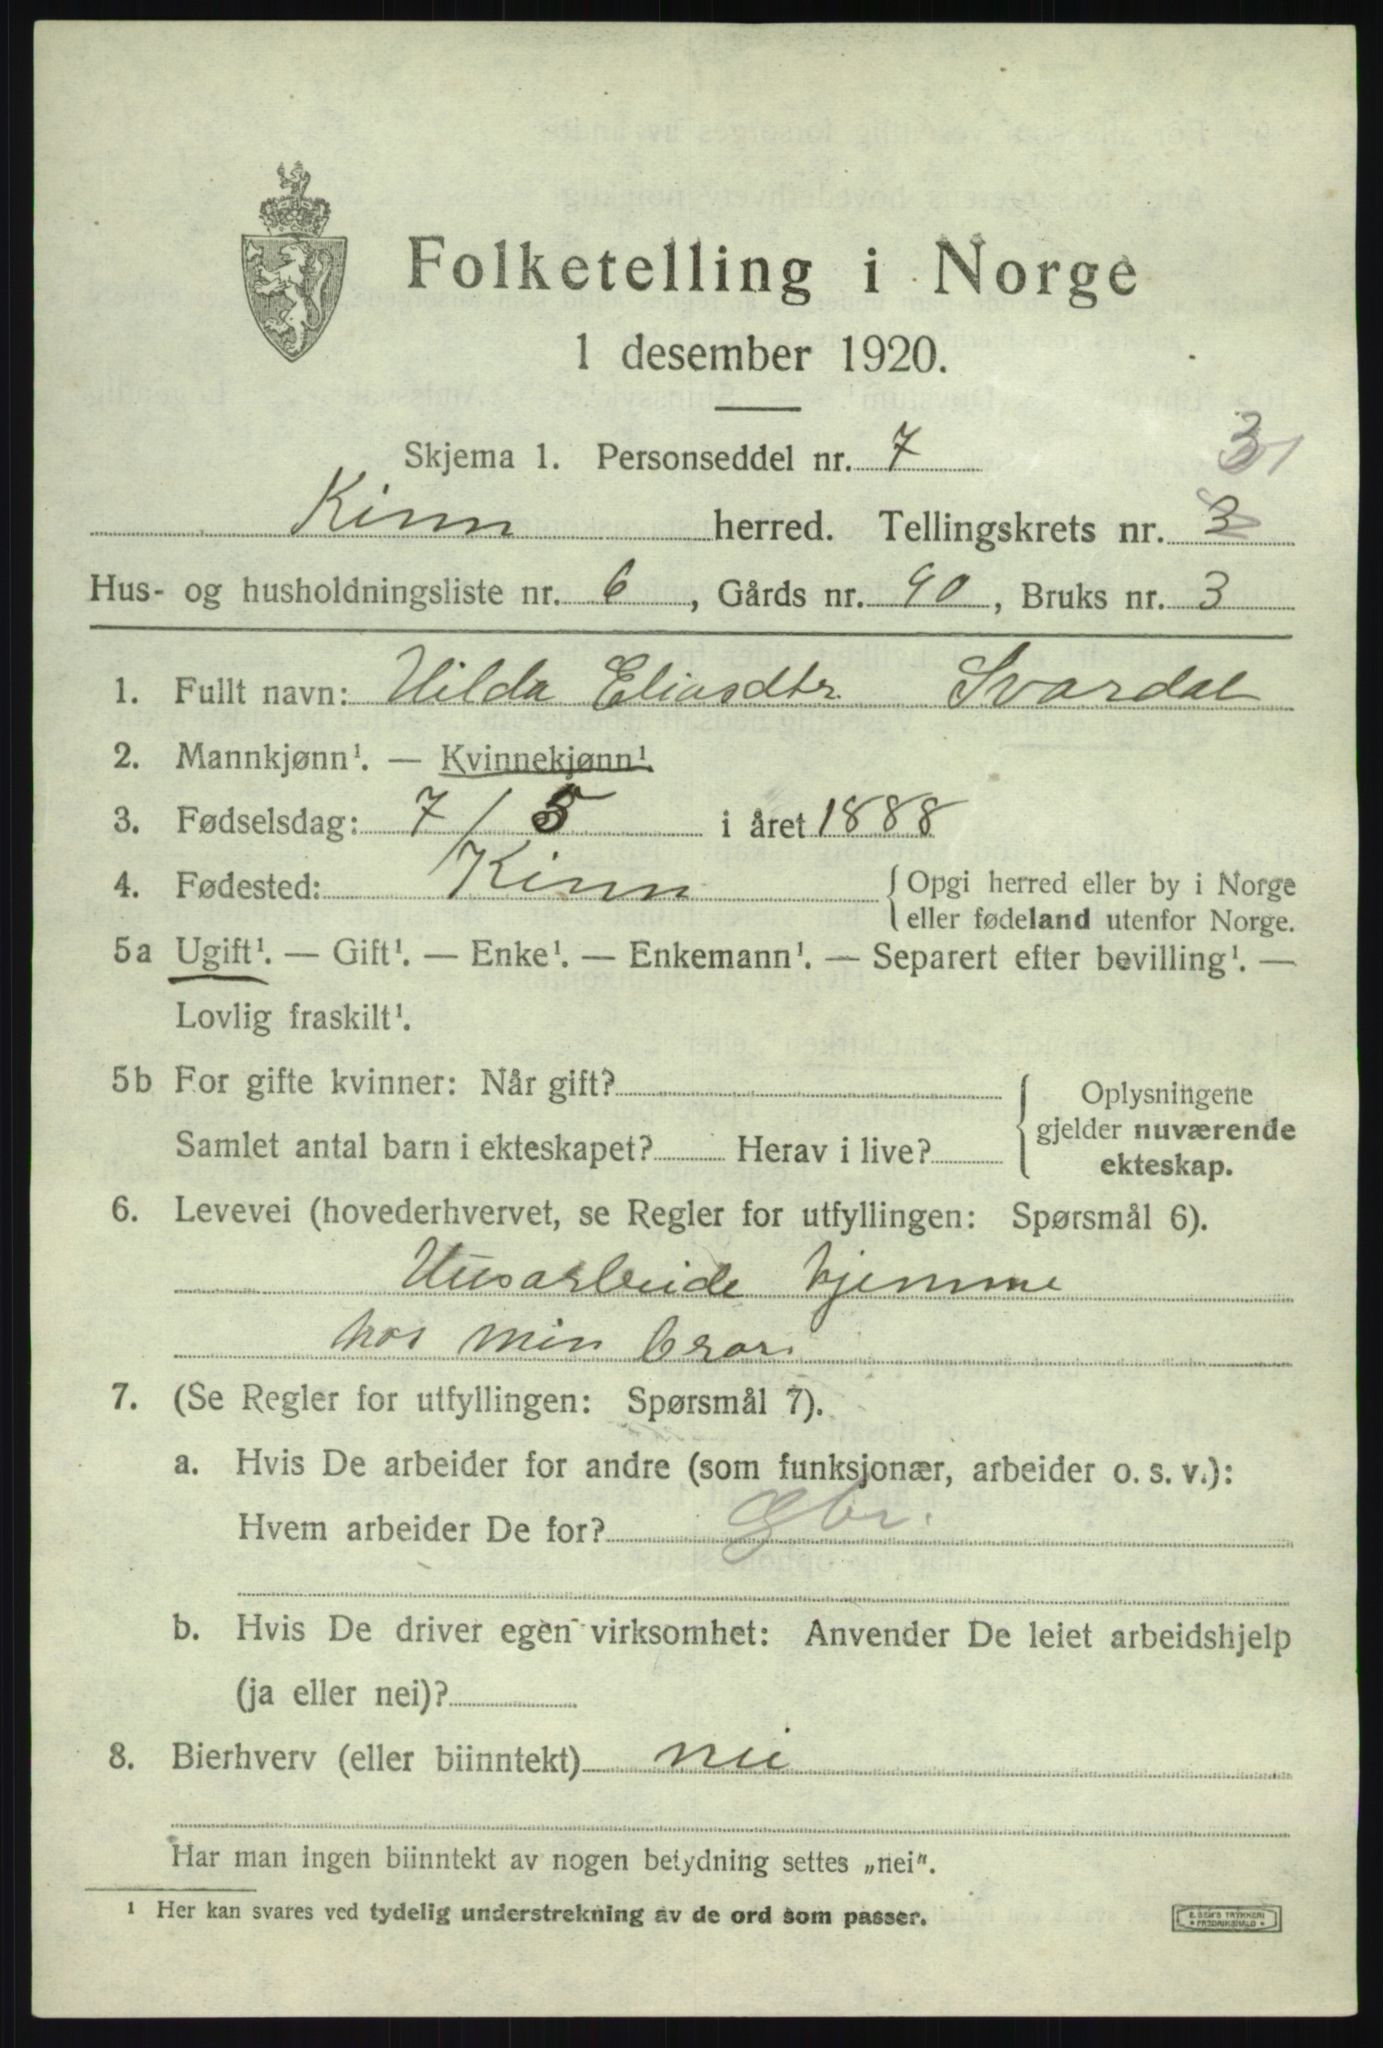 Folketelling i Norge
1 desember 1920.
Skjema 1. Personseddel nr. 7
3
Kinn herred. Tellingskrets nr. 3
Hus- og husholdningsliste nr. 6, Gårds nr. 90, Bruks nr. 3
1. Fullt navn: Hilda Eliasdtr. Svardal
2. Mannkjønn¹. — Kvinnekjønn¹.
3. Fødselsdag: 7/5 i året 1888
4. Fødested: Kinn { Opgi herred eller by i Norge
eller fødeland utenfor Norge.
5a Ugift¹. — Gift¹. — Enke¹. — Enkemann¹. — Separert efter bevilling¹. —
Lovlig fraskilt¹.
5b For gifte kvinner: Når gift?
Samlet antal barn i ekteskapet? Herav i live?
Oplysningene
gjelder nuværende
ekteskap.
6. Levevei (hovederhvervet, se Regler for utfyllingen: Spørsmål 6).
Husarbeide hjemme
hos min bror.
7. (Se Regler for utfyllingen: Spørsmål 7).
a. Hvis De arbeider for andre (som funksjonær, arbeider o. s. v.):
Hvem arbeider De for? Gbr.
b. Hvis De driver egen virksomhet: Anvender De leiet arbeidshjelp
(ja eller nei)?
8. Bierhverv (eller biinntekt) nei
Har man ingen biinntekt av nogen betydning settes „nei“.
¹ Her kan svares ved tydelig understrekning av de ord som passer.
E. SEM'S TRYKKERI
• FREDRIKSHALD •